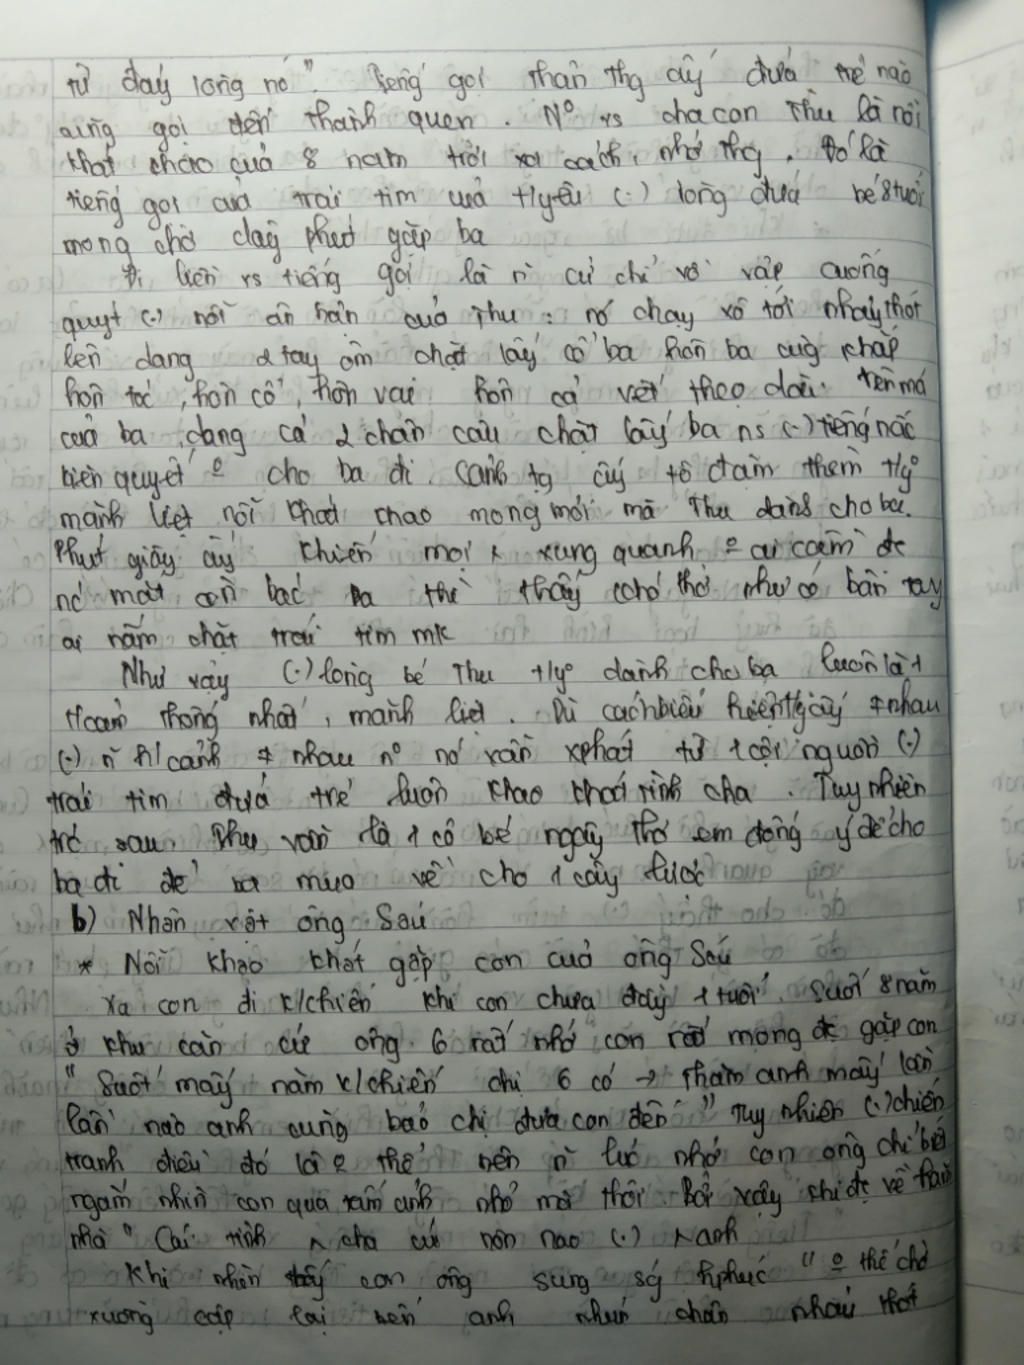 từ đáy lòng nó". Tiếng gọi thân thg ấy đứa trẻ nào
cũng gọi đến thành quen. Nº vs cha con Thu là nỗi
khát khao của 8 năm trời xa cách, nhớ thg. Đó là
tiếng gọi của trái tim của t/yêu (.) lòng đứa bé 8 tuổi
mong chờ dây phút gặp ba
Đi liền vs tiếng gọi là n~ cử chỉ vồ vập cuống
quýt (.) nỗi ân hận của Thu: nó chạy xô tới nhảy thót
lên dang 2 tay ôm chặt lấy cổ ba hôn ba cùg khắp
hôn tóc, hôn cổ, hôn vai hôn cả vết theo dài trên má
của ba, dang cả 2 chân câu chặt lấy ba ns (.) tiếng nấc
kiên quyết º cho ba đi. Cảnh tg ấy tô đậm thêm t/yº
mãnh liệt nỗi khát khao mong mỏi mà Thu dành cho ba.
Phút giây ấy khiến mọi x xung quanh º ai cầm đc
nc mắt còn bác Ba thì thấy khó thở như có bàn tay
ai nắm chặt trái tim mk
Như vậy (.) lòng bé Thu t/yº dành cho ba luôn là 1
t/cảm thống nhất, mãnh liệt. Dù cách biểu hiện t/y ấy ≠ nhau
(.) n~ h/cảnh ≠ nhau nº nó vẫn xphát từ 1 cội nguồn (.)
trái tim đứa trẻ luôn khao khát tình cha. Tuy nhiên
trc sau Thu vẫn là 1 cô bé ngây thơ em đồng ý để cho
ba đi để ba mua về cho 1 cây lược
b) Nhân vật ông Sáu
* Nỗi khao khát gặp con của ông Sáu
Xa con đi k/chiến khi con chưa đầy 1 tuổi. Suốt 8 năm
ở khu căn cứ ông 6 rất nhớ con rất mong đc gặp con
"Suốt mấy năm k/chiến chị 6 có → thăm anh mấy lần
lần nào anh cũng bảo chị đưa con đến" Tuy nhiên (.) chiến
tranh điều đó là º thể nên n~ lúc nhớ con ông chỉ biết
ngắm nhìn con qua tấm ảnh nhỏ mà thôi. Bởi vậy khi đc về thăm
nhà "Cái tình x cha cứ nôn nao (.) x anh
Khi nhìn thấy con ông sung sg h/phúc "º thể chờ
xuồng cặp lại bến anh nhún chân nhảy thót